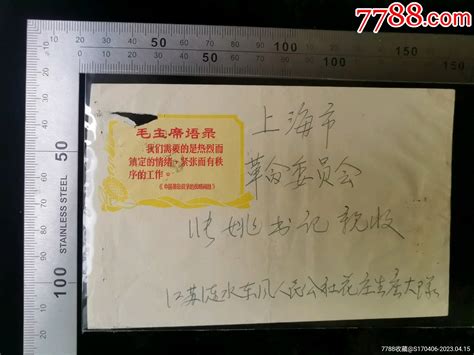 7788.com
50
100
150
100
STAINLESS STEEL
50
毛主席语录
我们需要的是热烈而
镇定的情绪,紧张而有秩
序的工作。
《中国革命战争的战略问题》
上海市
革命委员会
张姚书记 亲收
江苏涟水东风人民公社花庄生产大队
7788收藏@S170406-2023.04.15